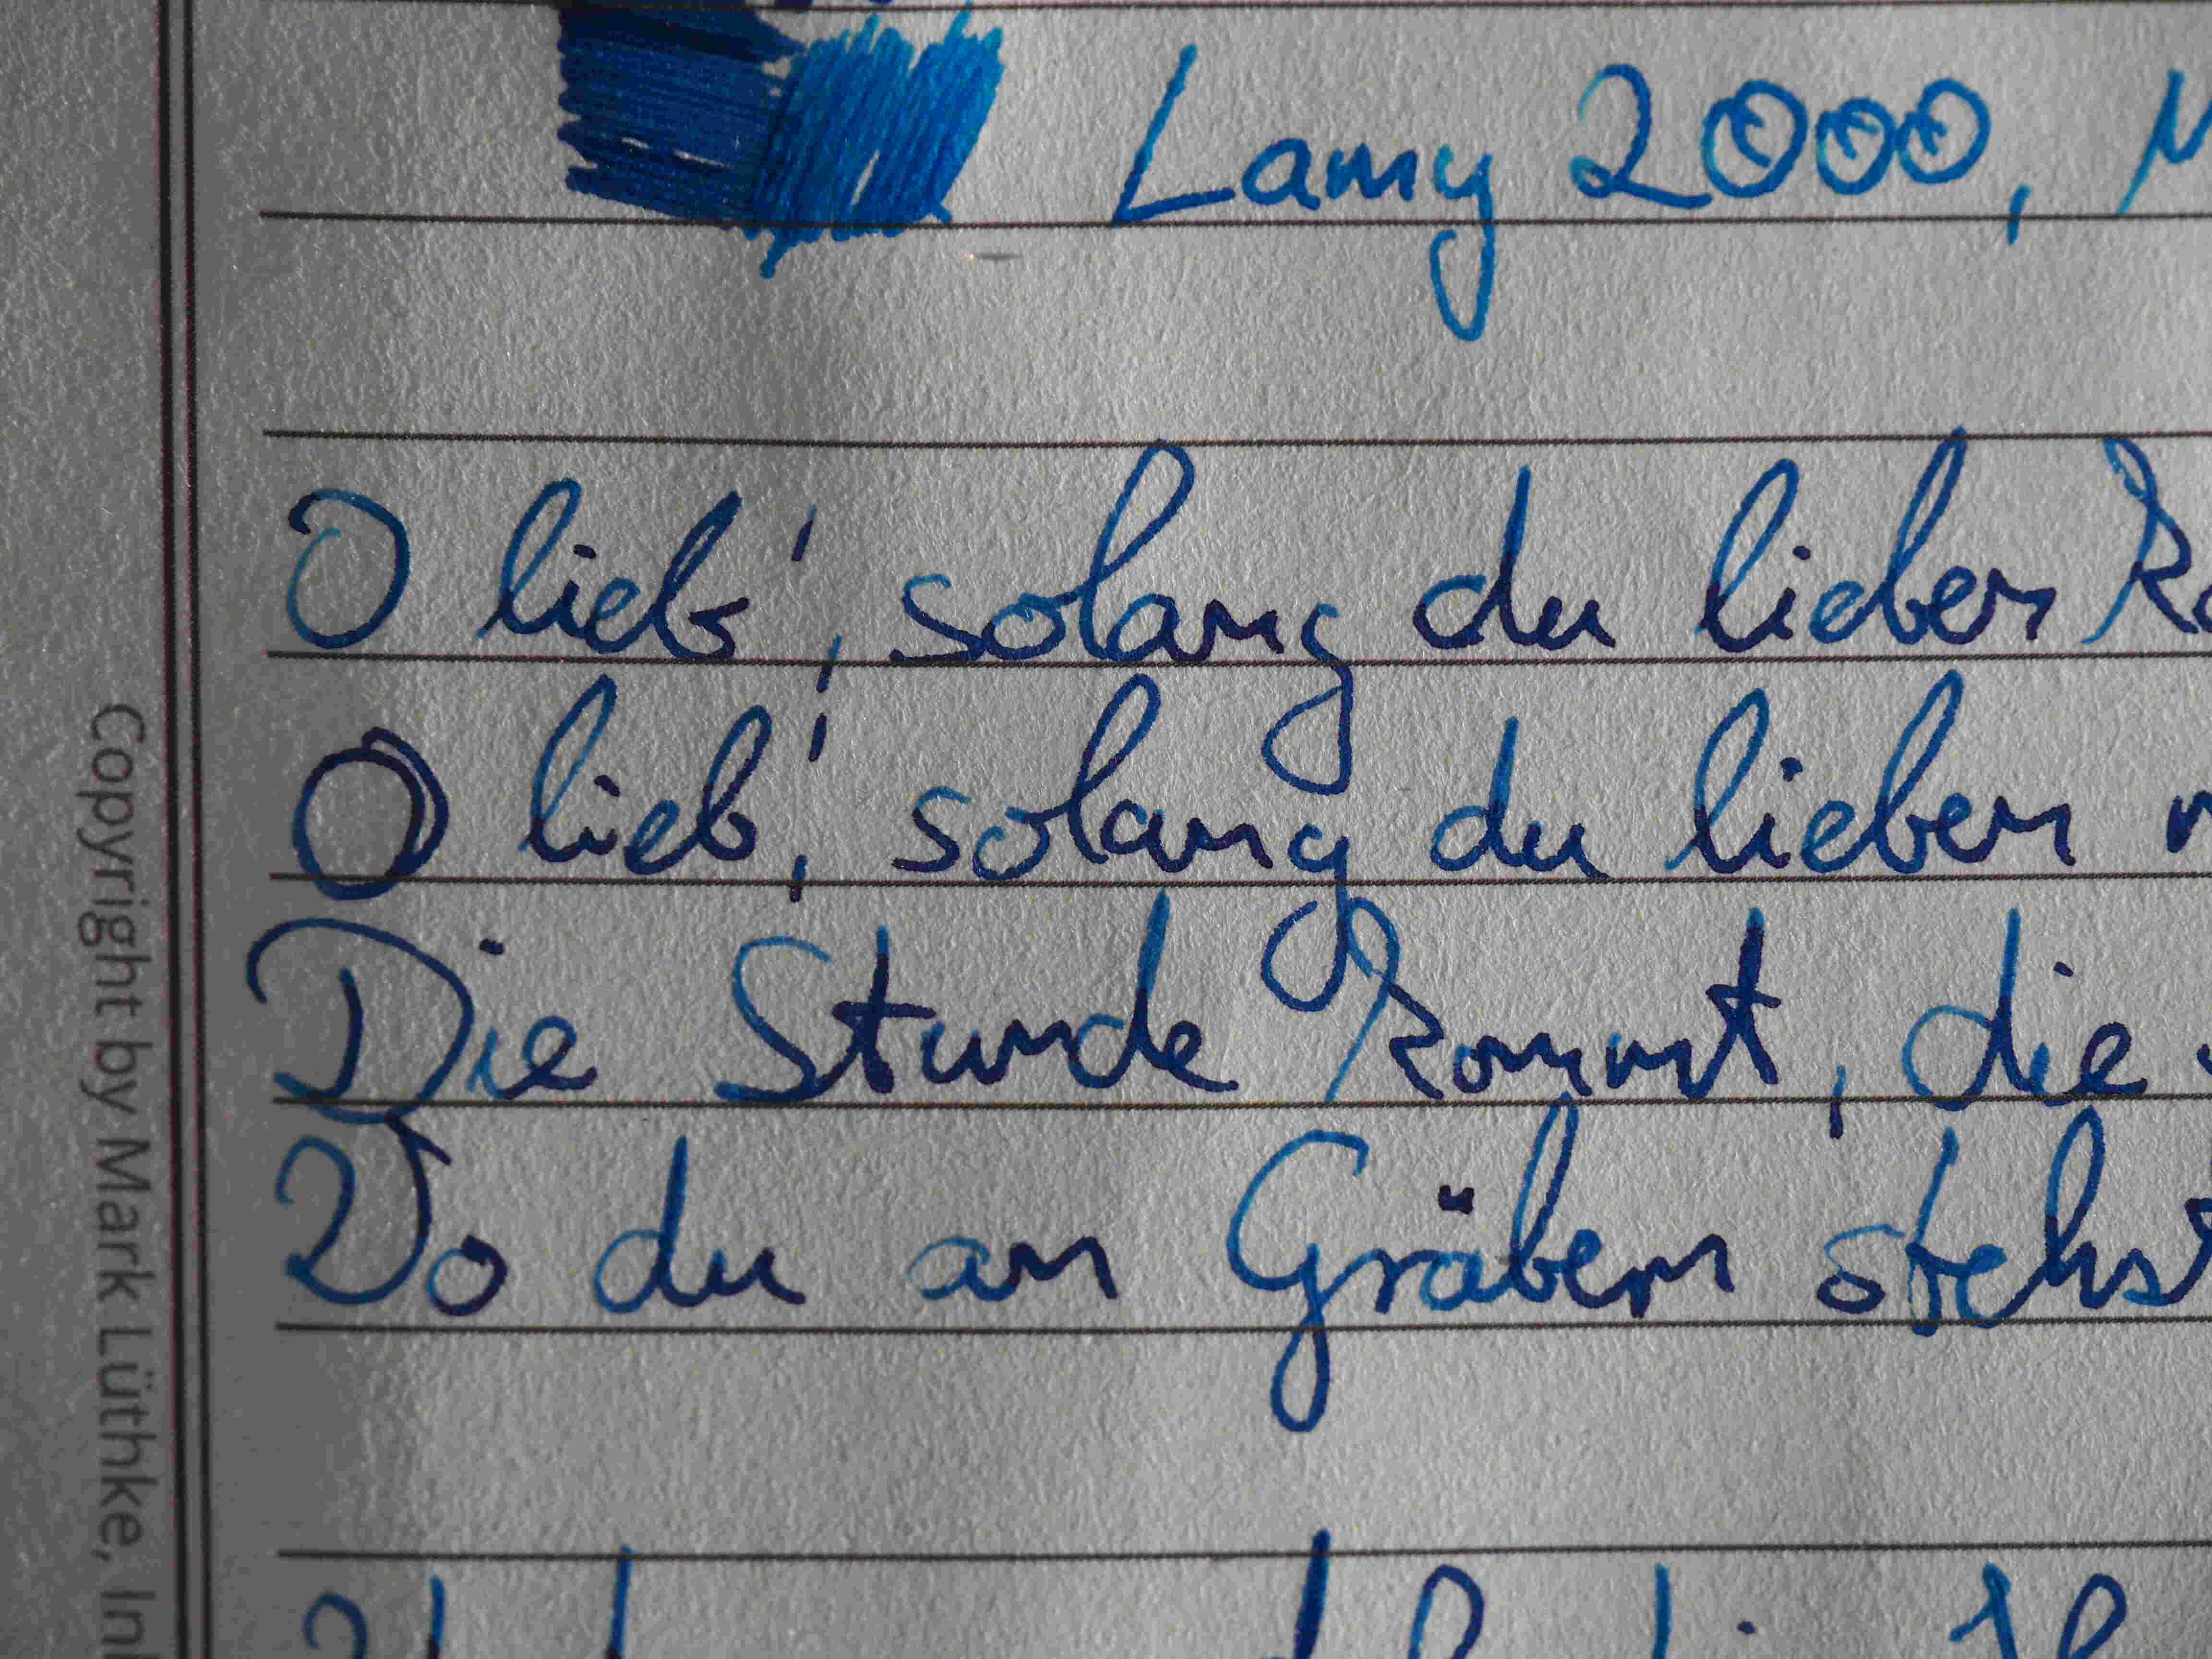 Lamy 2000, M
O lieb', solang du lieben
O lieb', solang du lieben
Die Stunde kommt, die
Wo du an Gräbern stehst
Copyright by Mark Lüthke, In